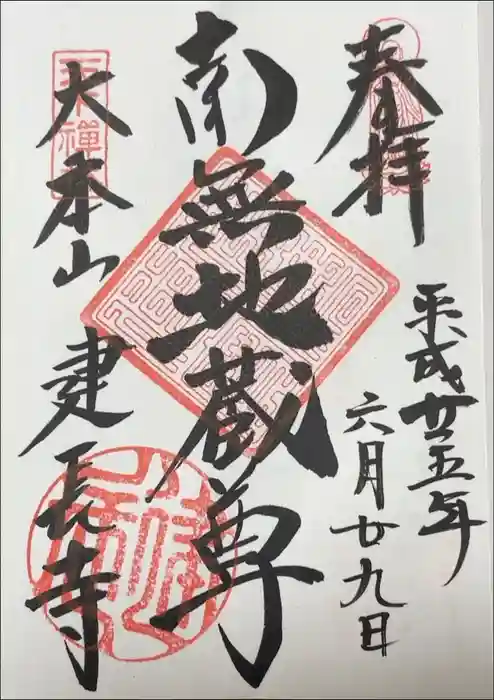 奉拝
平成廿五年
六月廿九日
南無地蔵尊
大本山
建長寺